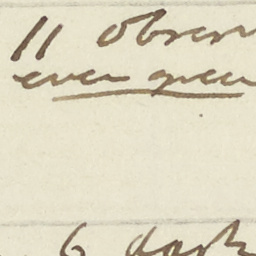 11 Obser
even green
6 dark